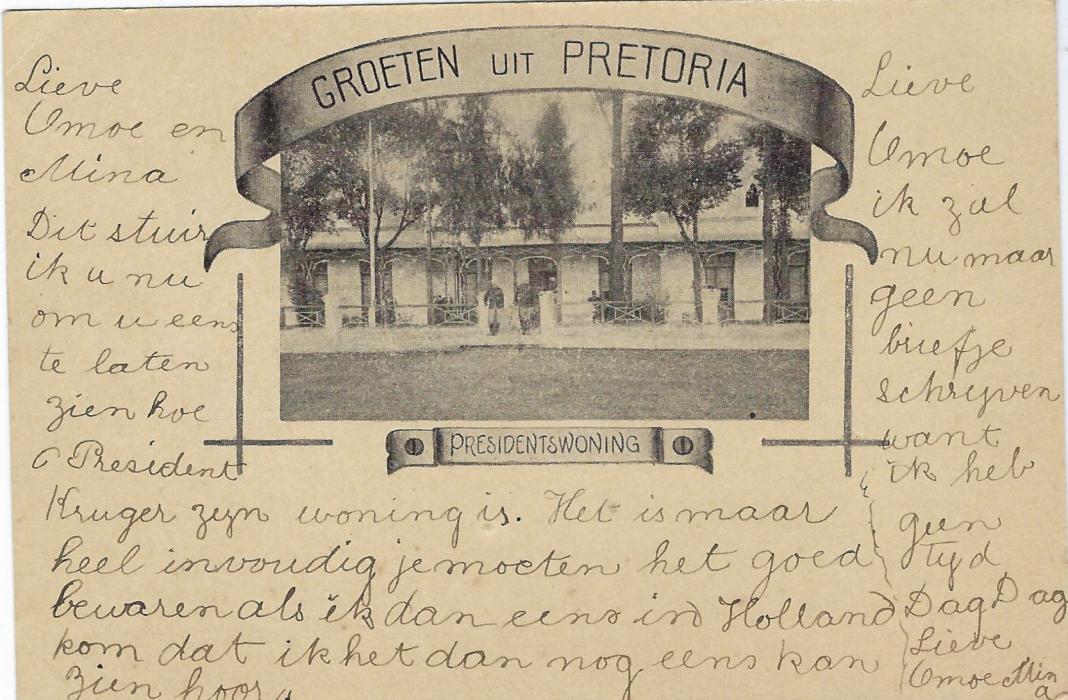 GROETEN UIT PRETORIA
PRESIDENTSWONING
Lieve
Omoe en
Mina
Dit stuir
ik u nu
om u eens
te laten
zien hoe
President
Kruger zyn woning is. Het is maar
heel invoudig je moeten het goed
bewaren als ik dan eens in Holland
kom dat ik het dan nog eens kan
zien hoor
Lieve
Omoe
ik zal
nu maar
geen
briefje
schryven
want
ik heb
geen
tyd
Dag Dag
Lieve
Omoe Min
a